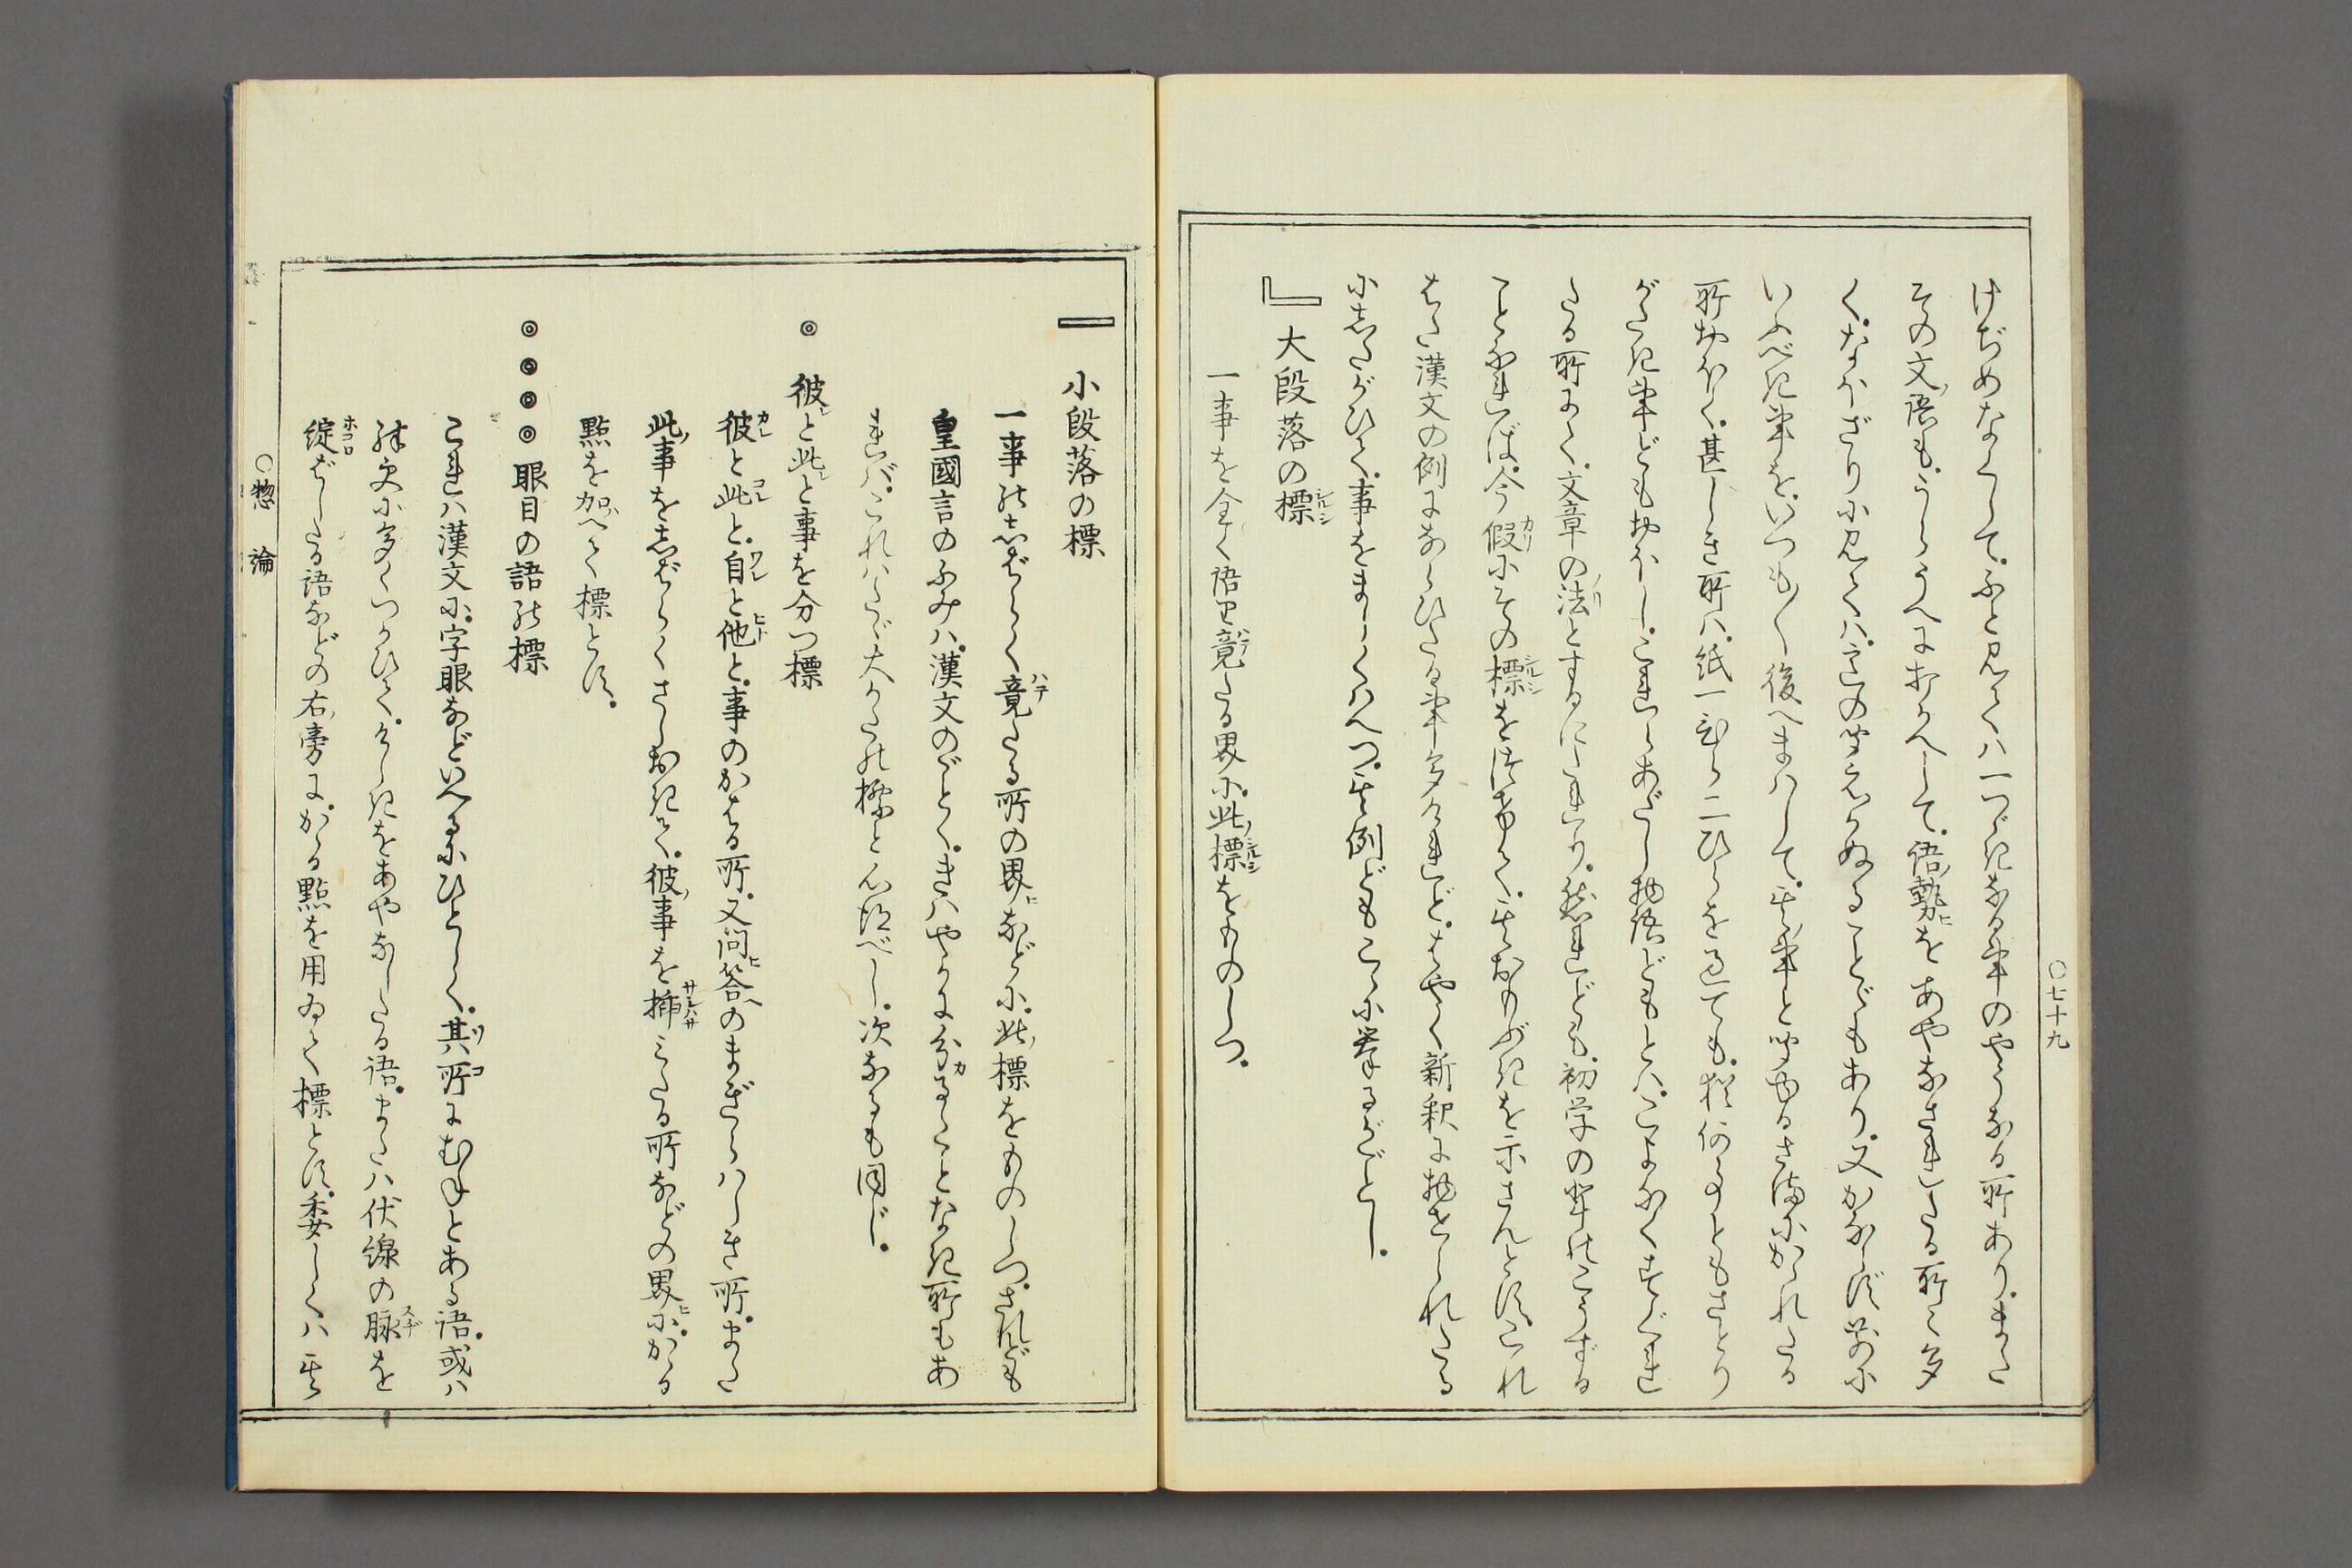 〇七十九
けぢめなくして。ふと見てハ一つゞきなる事のやうなる所あり。また
その文ノ語も。うらうへにおかへして。語ノ勢ヒをあやなされたる所々多
く。なほざりに見てハ。意の聞えかぬることゞもあり。又かならず前に
いふべき事を。いつも〱後へまはして。其ノ事と聞ゆるさまにかゝれたる
所おほく。甚しき所ハ。紙一ひら二ひらを過ても。猶何ゝ事ともさとり
がたき事どもおほし。これらあだし物語どもとハ。こよなくすぐれ
たる所にて。文章の法とするにたれり。然れども。初学の輩のこうずる
ことなれば。今假にその標を設けて。其おもぶきを示さんとす。これ
はた漢文の例にならひたる事多けれど。はやく新釈に物せられたる
にしたがひて。事をまじへくハへつ。其例どもこゝに挙るがごとし。
』大段落の標
一事を全く語り竟たる界に。此ノ標をものしつ。
小段落の標
一事のしばらく竟たる所の界ヒなどに。此ノ標をものしつ。されども
皇國言のふみハ。漢文のごとく。きハやかに分るゝことなき所もあ
れバ。これハたゞ大かたの標と心得べし。次なるも同じ。
◎ 彼レと此レと事を分つ標
彼と此と。自と他と。事のかはる所。又問ヒ答へのまぎらハしき所。また
此ノ事をしばらくさしおきて。彼ノ事を挿みたる所などの界ヒに。かゝる
點を加へて標とす。
◎◎◎◎眼目の語の標
これハ漢文に。字眼などいへるにひとしく。其所にむねとある語。或ハ
殊更に多くつかひて。けしきをあやなしたる語。またハ伏線の脉を
綻ばしたる語などの右ノ旁に。かゝる點を用ゐて標とす。委しくハ其
〇惣論